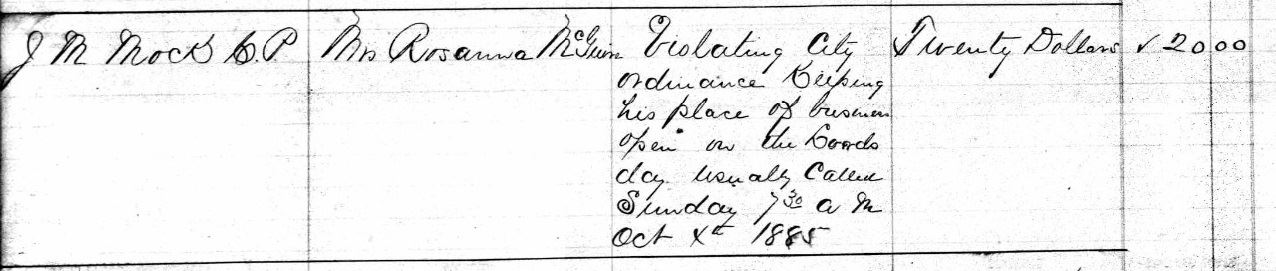 J M Mock C.P Mrs Rosanna McGunn Violating City Twenty Dollars ✓ 20 00
ordinance Keeping
his place of business
open on the Loords
day usually Called
Sunday 7 30 a m
Oct 4th 1885